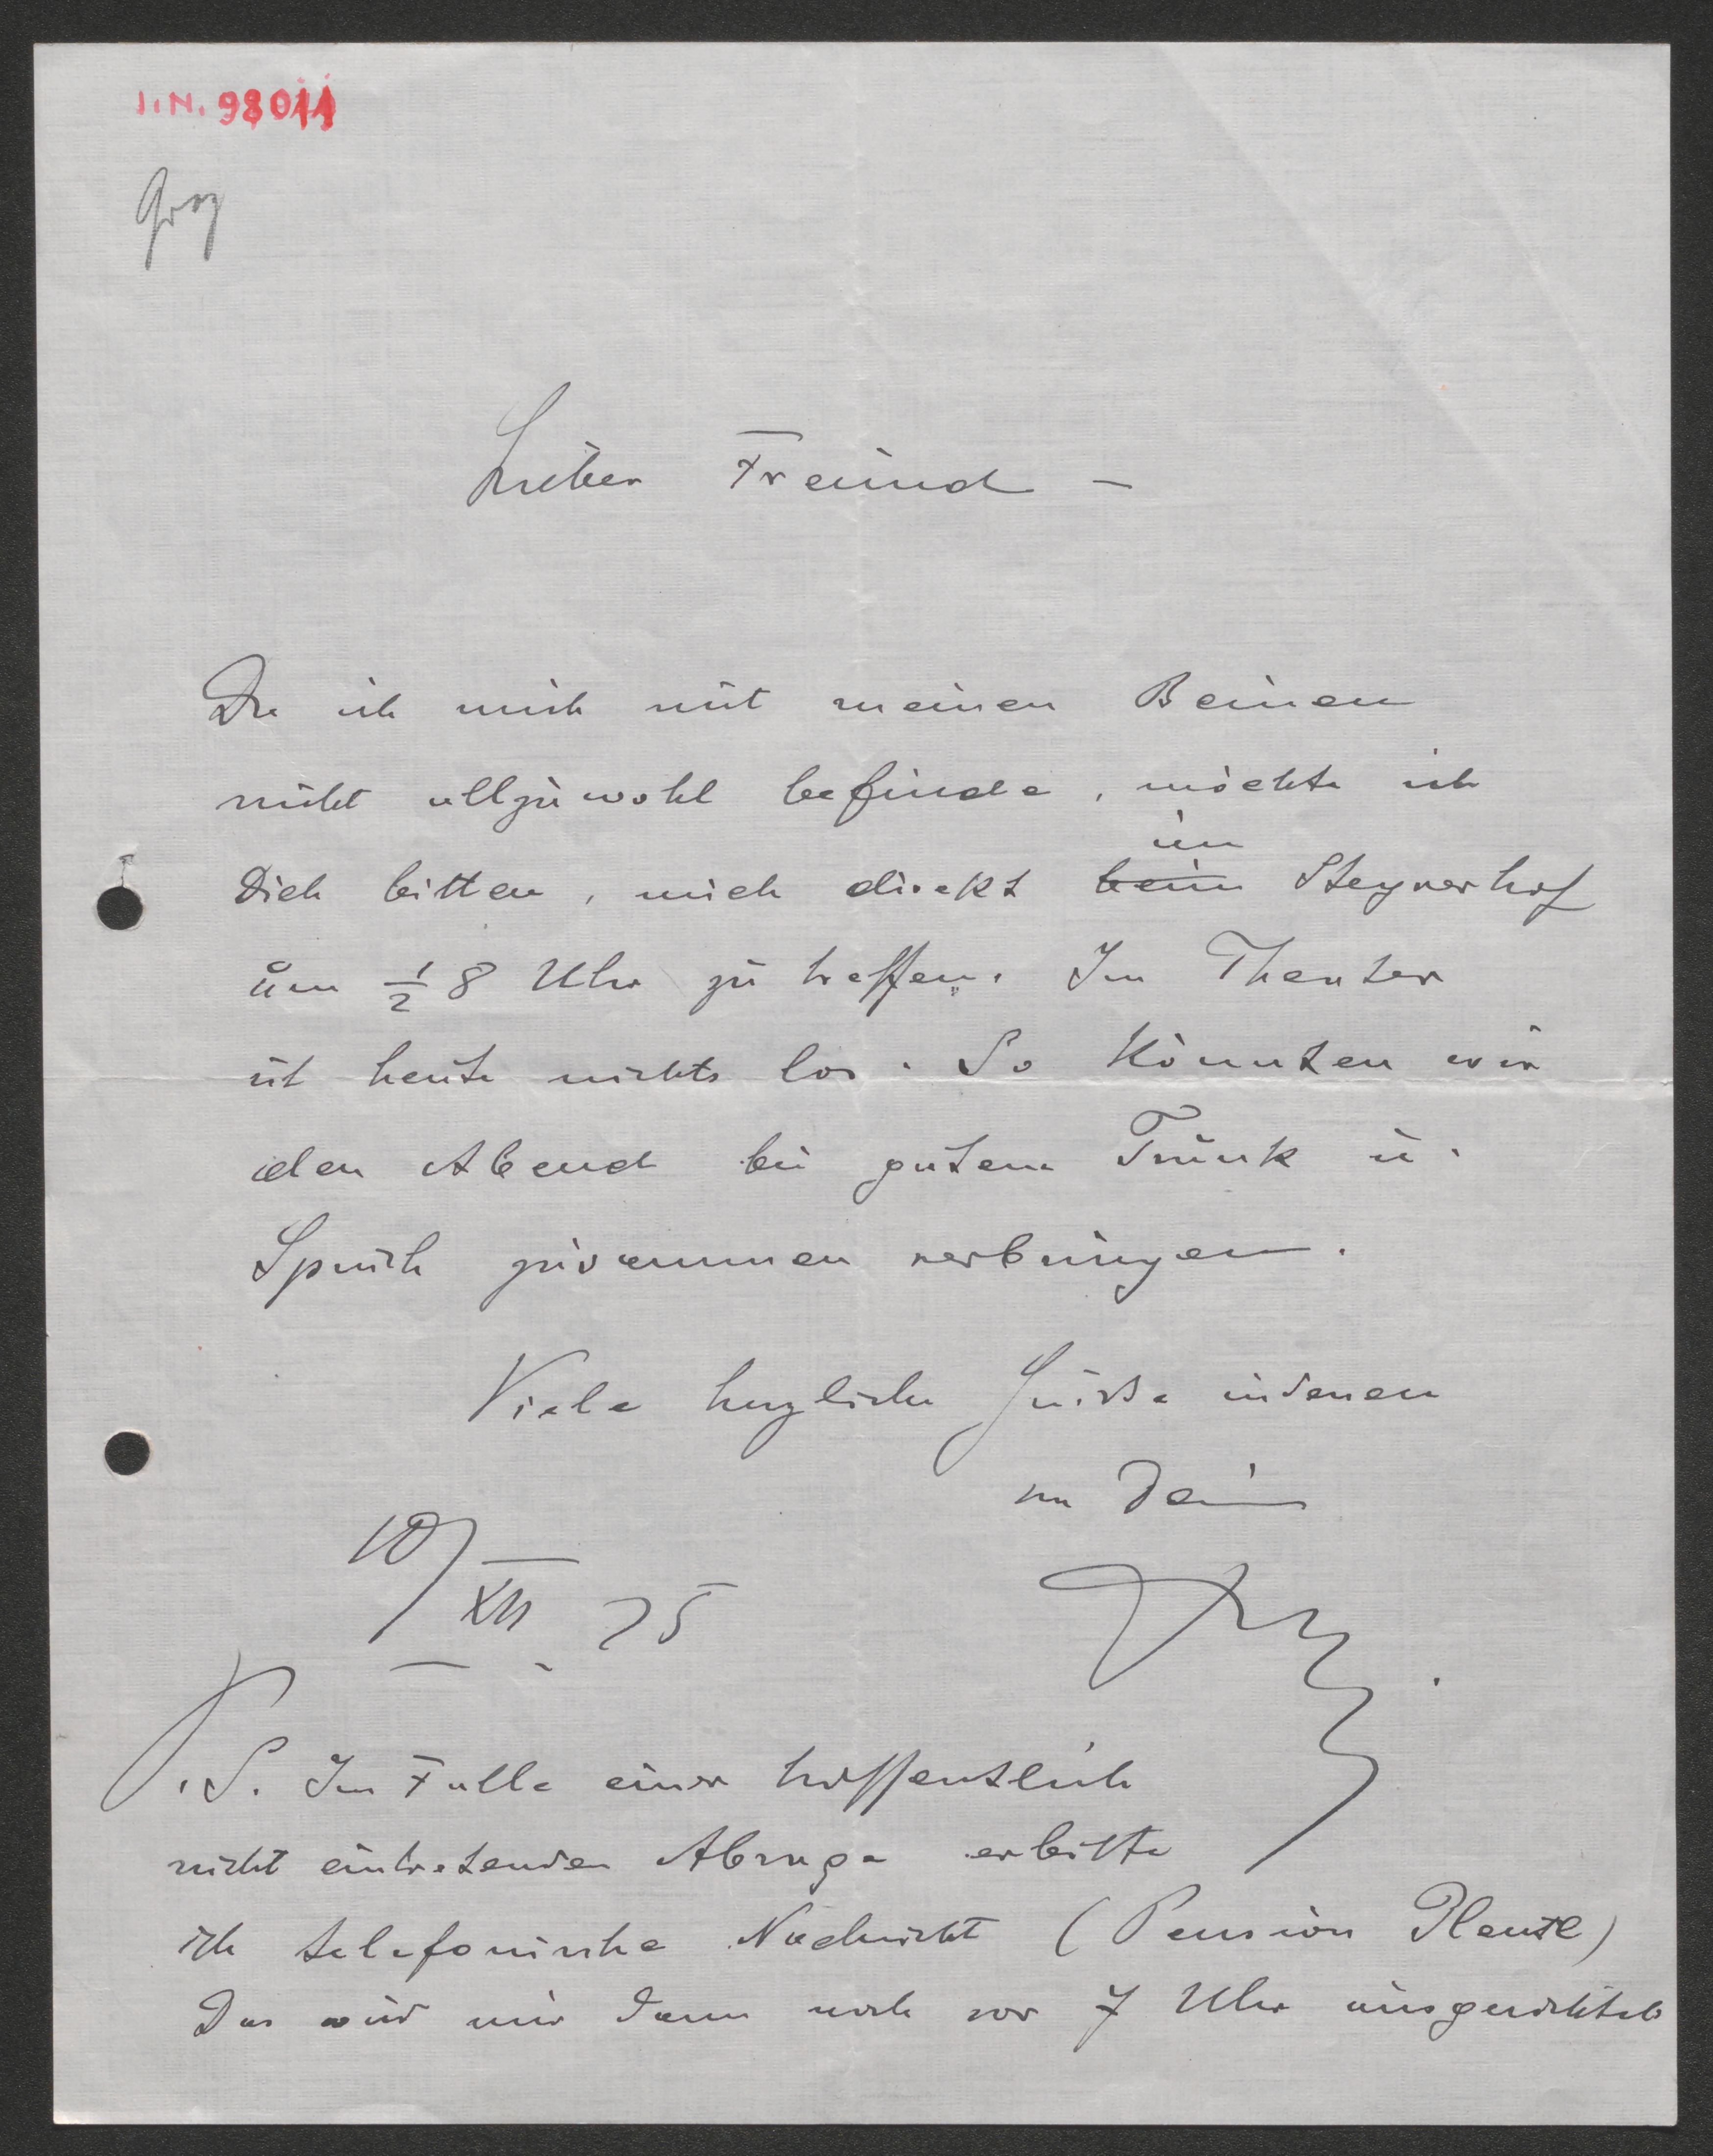 I.N. 98011
Lieber Freund –
Da ich mich mit meinen Beinen
nicht allzuwohl befinde, möchte ich
im
Dich bitten, mich direkt beim Steyrerhof
um ½ 8 Uhr zu treffen. Im Theater
ist heute nichts los. So könnten wir
den Abend bei gutem Trunk u.
Spruch zusammen verbringen.
Viele herzliche Grüsse indenen
Dein
10/XII 25
P.S. Im Falle einer hoffentlich
nicht eintretenden Absage erbitte
ich telefonische Nachricht (Pension Plentl)
Das wird mir dann noch vor 7 Uhr ausgerichtet